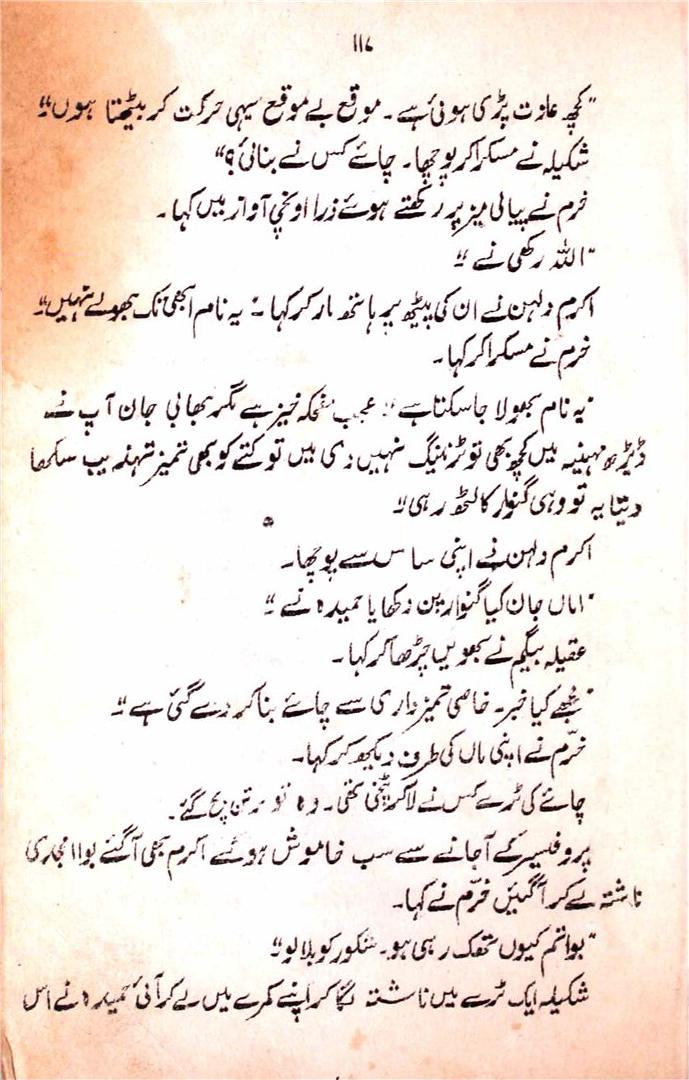 ۱۱۷
"کچھ عادت پڑی ہوئی ہے ۔ موقع بے موقع یہی حرکت کر بیٹھتا ہوں"
شکیلہ نے مسکرا کر پوچھا۔ چائے کس نے بنائی؟"
خرم نے پیالی میز پر رکھتے ہوئے ذرا اونچی آواز میں کہا ۔
"اللہ رکھی نے"
اکرم دلہن نے ان کی پیٹھ پر ہاتھ مار کر کہا ۔ "یہ نام ابھی تک بھولے نہیں"
خرم نے مسکرا کر کہا ۔
"یہ نام بھولا جا سکتا ہے" عجیب مضحکہ خیز ہے مگر بھابی جان آپ نے
ڈیڑھ مہینہ میں کچھ بھی تو ٹریننگ نہیں دی میں تو کتے کو بھی تمیز تہذیب سکھا
دیتا یہ تو وہی گنوار کا لٹھ رہی"
اکرم دلہن نے اپنی ساس سے پوچھا۔
"اماں جان کیا گنوارپن دکھایا حمیدہ نے"
عقیلہ بیگم نے بھویں چڑھا کر کہا ۔
"مجھے کیا خبر۔ خاصی تمیز داری سے چائے بنا کر دے گئی ہے"
خرّم نے اپنی ماں کی طرف دیکھ کر کہا۔
چائے کی ٹرے کس نے لا کر پٹخی تھی ۔ وہ تو برتن بچ گئے ۔
پروفیسر کے آجانے سے سب خاموش ہو گئے اکرم بھی آگئے بوا انجاری
ناشتہ لے کر آگئیں خرّم نے کہا۔
"بوا تم کیوں تھک رہی ہو۔ شکور کو بلا لو"
شکیلہ ایک ٹرے میں ناشتہ لگا کر اپنے کمرے میں لے کر آئی حمیدہ نے اس